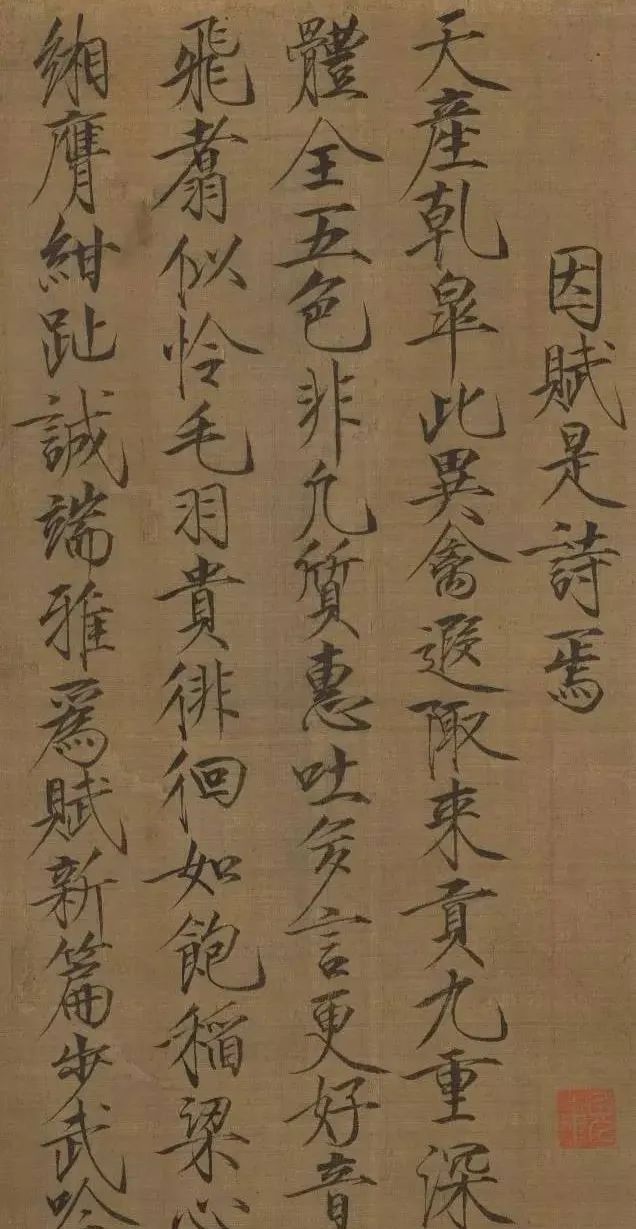 因賦是詩焉
天產乾皐此異禽遐陬来貢九重深
體全五色非凡質惠吐多言更好音
飛翥似怜毛羽貴徘徊如飽稻粱心
緗膺紺趾誠端雅爲賦新篇步武吟